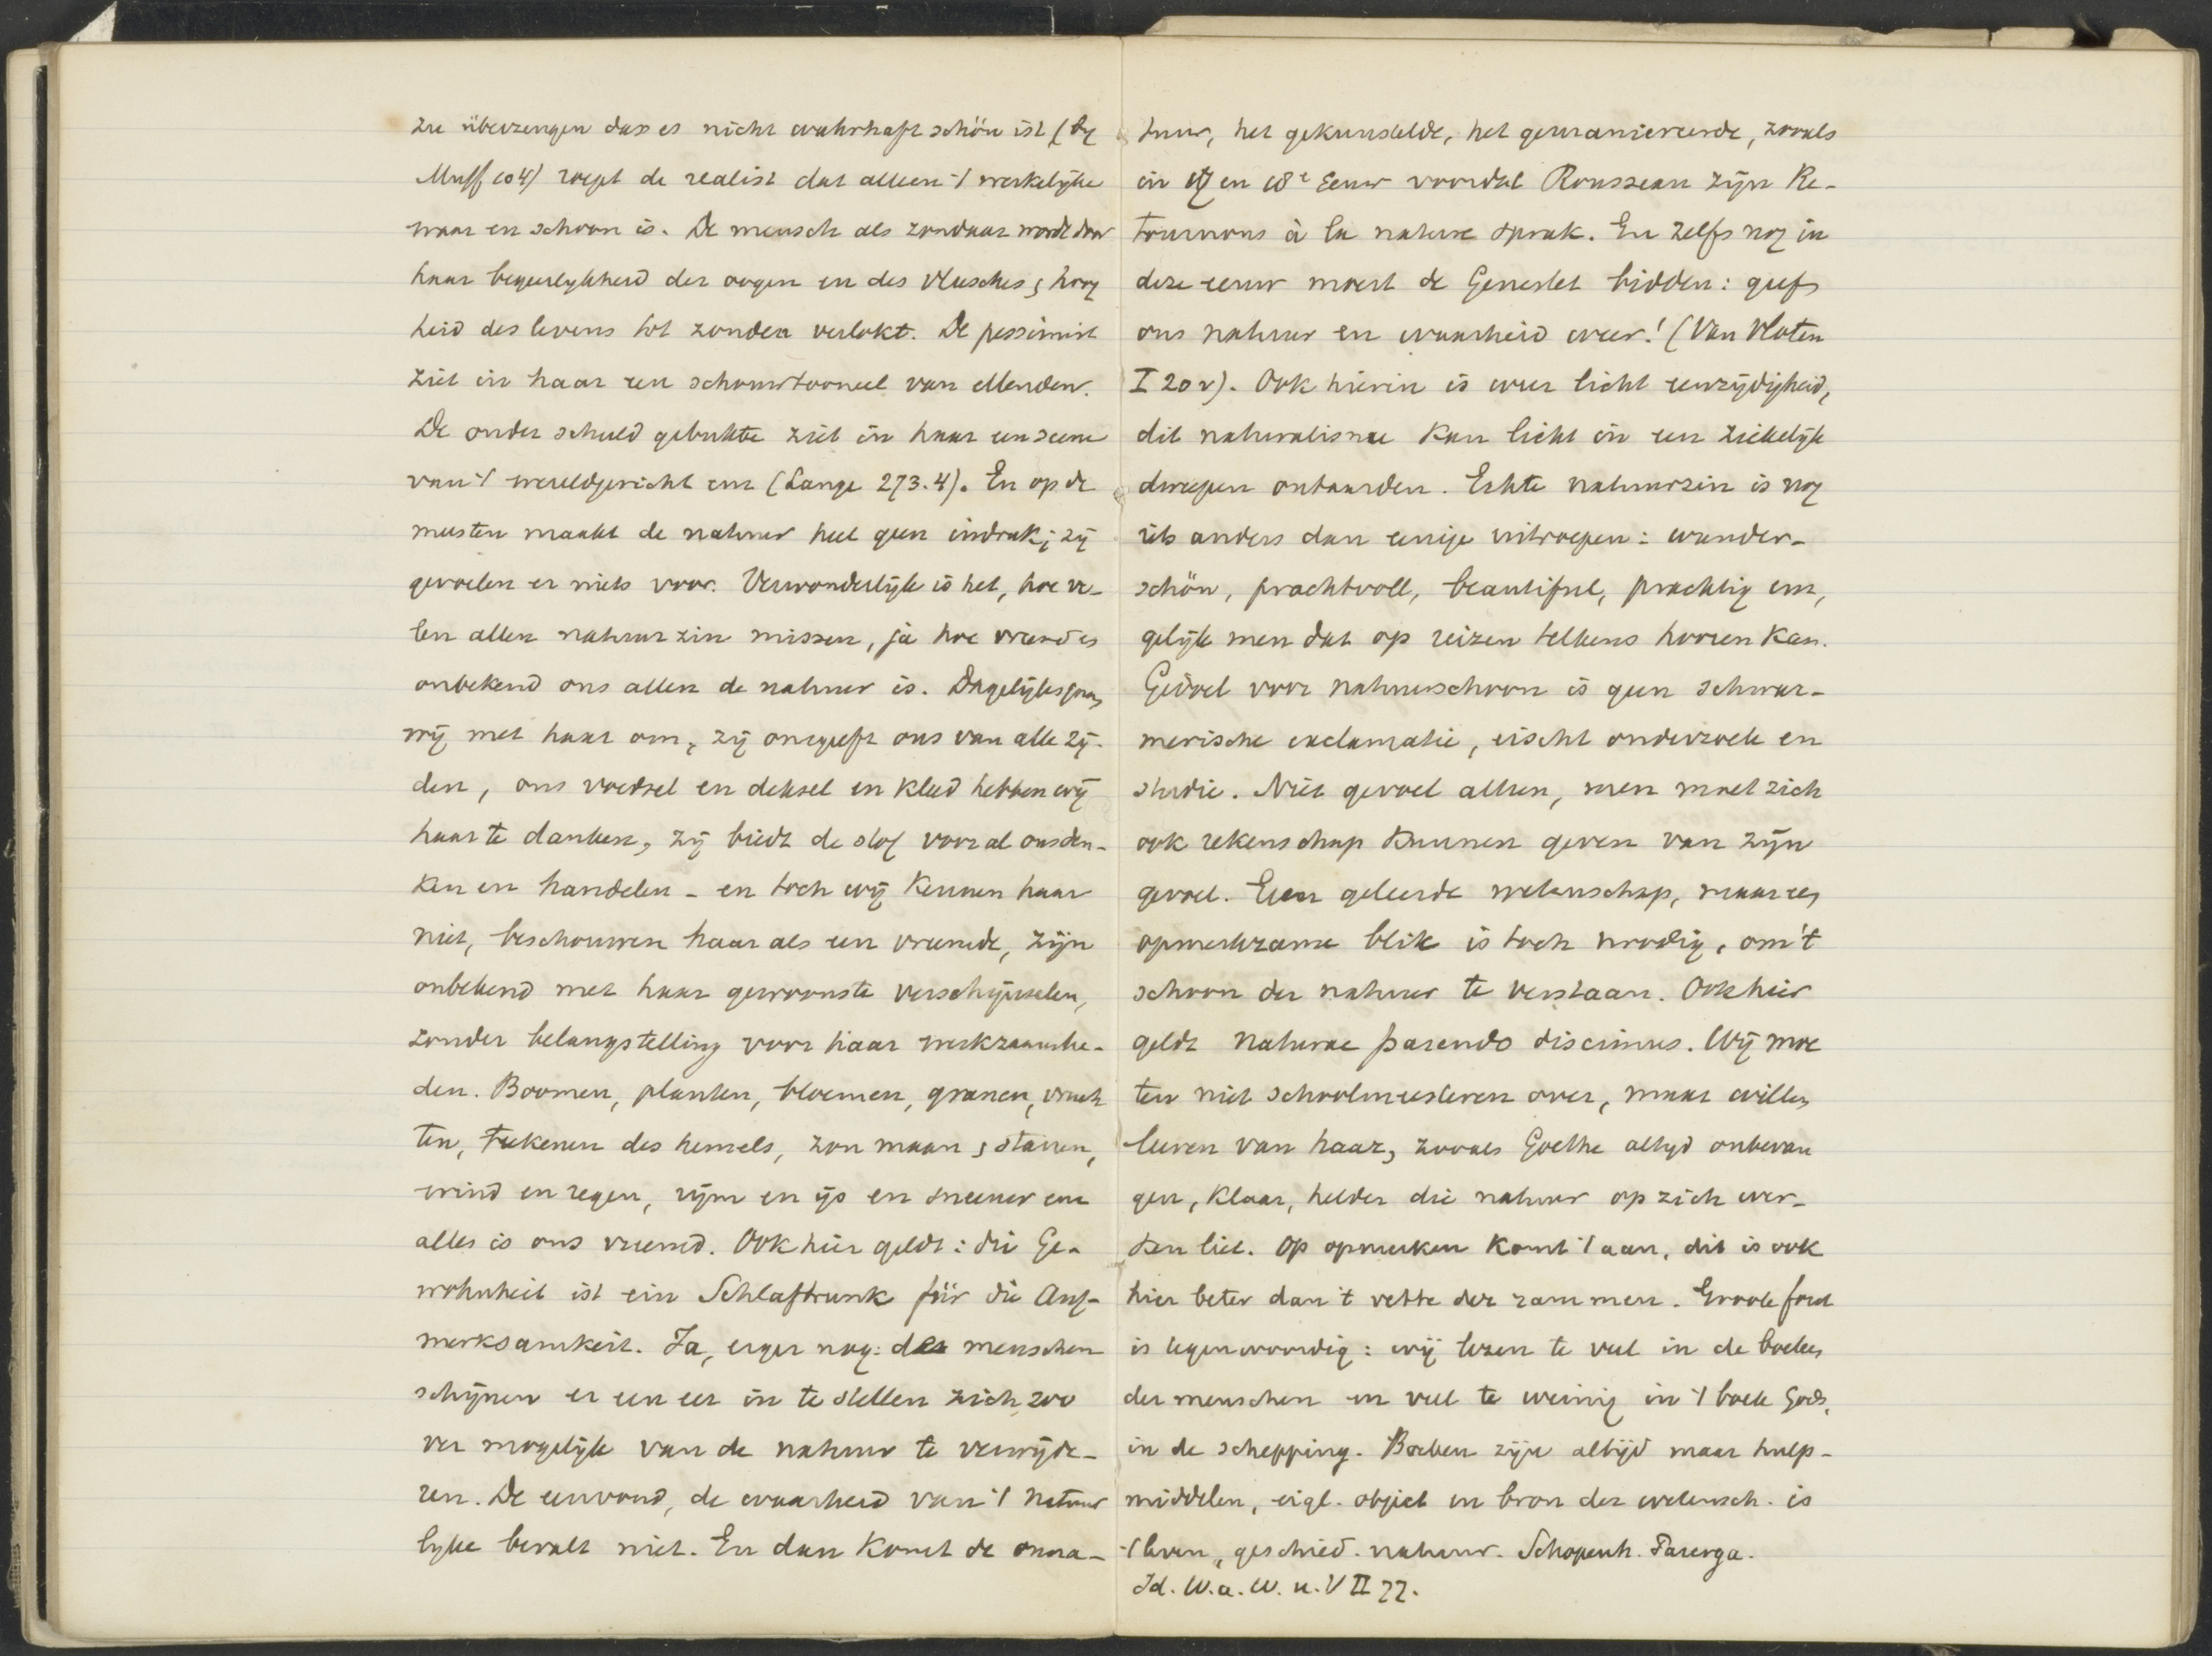 zu überzeugen dass es nicht wahrhaft schön ist (by
Muff 104) roept de realist dat alleen 't werkelijke
waar en schoon is. De mensch als zondaar wordt door
haar begeerlykheid der oogen en des vleesches, hoog
heid des levens tot zonden verlokt. De pessimist
ziet in haar een schouwtooneel van ellenden.
De onder schuld gebukte ziet in haar een scene
van 't wereldgericht enz (Lange 273.4). En op de
meesten maakt de natuur heel geen indruk; zij
gevoelen er niets voor. Verwonderlijk is het, hoe ve-
len allen natuurzin missen, ja hoe vreemd en
onbekend ons allen de natuur is. Dagelijks gaan
wij met haar om, zij omgeeft ons van alle zij-
den, ons voedsel en deksel en kleed hebben wij
haar te danken, zij biedt de stof voor al ons den-
ken en handelen - en toch wij kennen haar
niet, beschouwen haar als een vreemde, zijn
onbekend met haar gewoonste verschijnselen,
zonder belangstelling voor haar werkzaamhe-
den. Boomen, planten, bloemen, granen, vruch
ten, teekenen des hemels, zon maan, starren,
wind en regen, rijm en ijs en sneeuw enz
alles is ons vreemd. Ook hier geldt: die Ge-
wohnheit ist ein Schlaftrunk für die Auf-
merksamkeit. Ja, erger nog: de menschen
schijnen er een eer in te stellen zich zoo
ver mogelijk van de natuur te verwijde-
ren. De eenvoud, de waarheid van 't natuur
lyke bevalt niet. En dan komt de onna-
tuur, het gekunstelde, het gemaniereerde, zooals
in 17 en 18e Eeuw voordat Rousseau zijn Re-
tournons à la nature sprak. En zelfs nog in
deze eeuw moest de Genestet bidden: geef
ons natuur en waarheid weer! (Van Vloten
I 202). Ook hierin is weer licht eenzijdigheid,
dit naturalisme kan licht in een ziekelijk
dweepen ontaarden. Echte natuurzin is nog
iets anders dan eenige uitroepen: wunder-
schön, prachtvoll, beautiful, prachtig enz,
gelijk men dat op reizen telkens hooren kan.
Gevoel voor natuurschoon is geen schwär-
merische exclamatie, eischt onderzoek en
studie. Niet gevoel alleen, men moet zich
ook rekenschap kunnen geven van zijn
gevoel. Geen geleerde wetenschap, maar een
opmerkzame blik is toch noodig, om 't
schoon der natuur te verstaan. Ook hier
geldt naturae parendo discimus. Wij moe
ten niet schoolmeesteren over, maar willen
leeren van haar, zooals Goethe altyd onbevan
gen, klaar, helder die natuur op zich wer-
ken liet. Op opmerken komt 't aan, dit is ook
hier beter dan 't vette der rammen. Groote fout
is tegenwoordig: wij lezen te veel in de boeken
der menschen en veel te weinig in 't boek Gods,
in de schepping. Boeken zijn altijd maar hulp-
middelen, eigl. object en bron der wetensch. is
't leven, geschied. natuur. Schopenh. Parerga.
Id. W.a.W.u.V II 77.